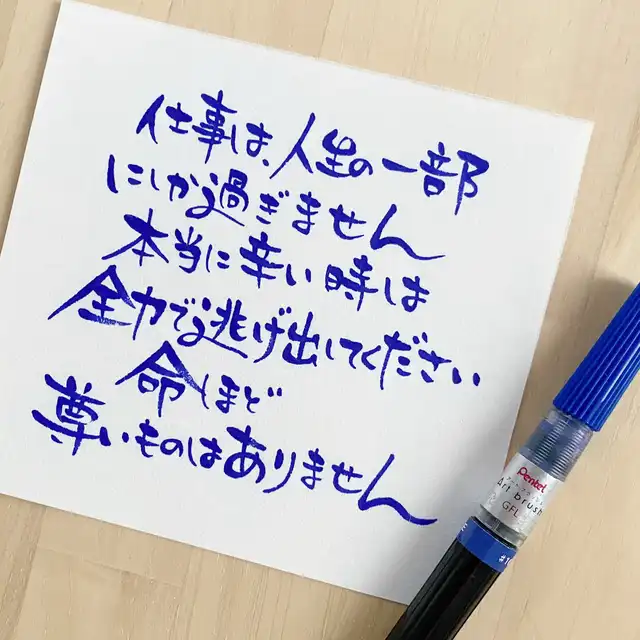 仕事は、人生の一部
にしか過ぎません
本当に辛い時は
全力で逃げ出してください
命ほど
尊いものはありません
Pentel
Art brush
GFL